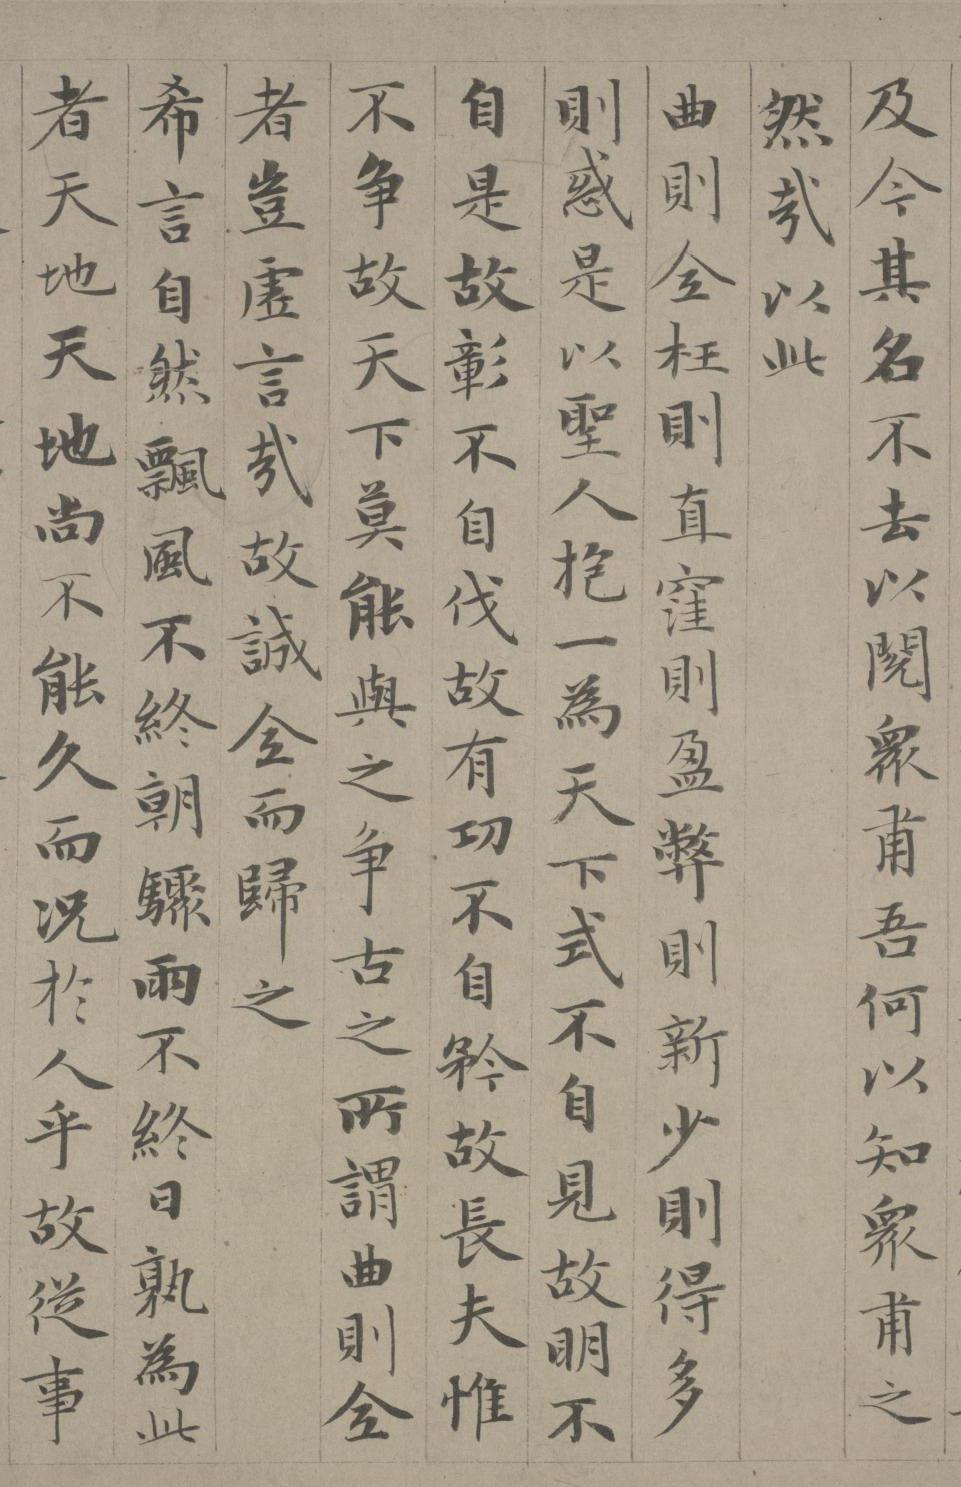 及今其名不去以閱衆甫吾何以知衆甫之
然㢤以此
曲則全枉則直窪則盈弊則新少則得多
則惑是以聖人抱一為天下式不自見故明不
自是故彰不自伐故有功不自矜故長夫惟
不争故天下莫能與之争古之所謂曲則全
者豈虛言㢤故誠全而歸之
希言自然飄風不終朝驟雨不終日孰為此
者天地天地尚不能久而况於人乎故從事